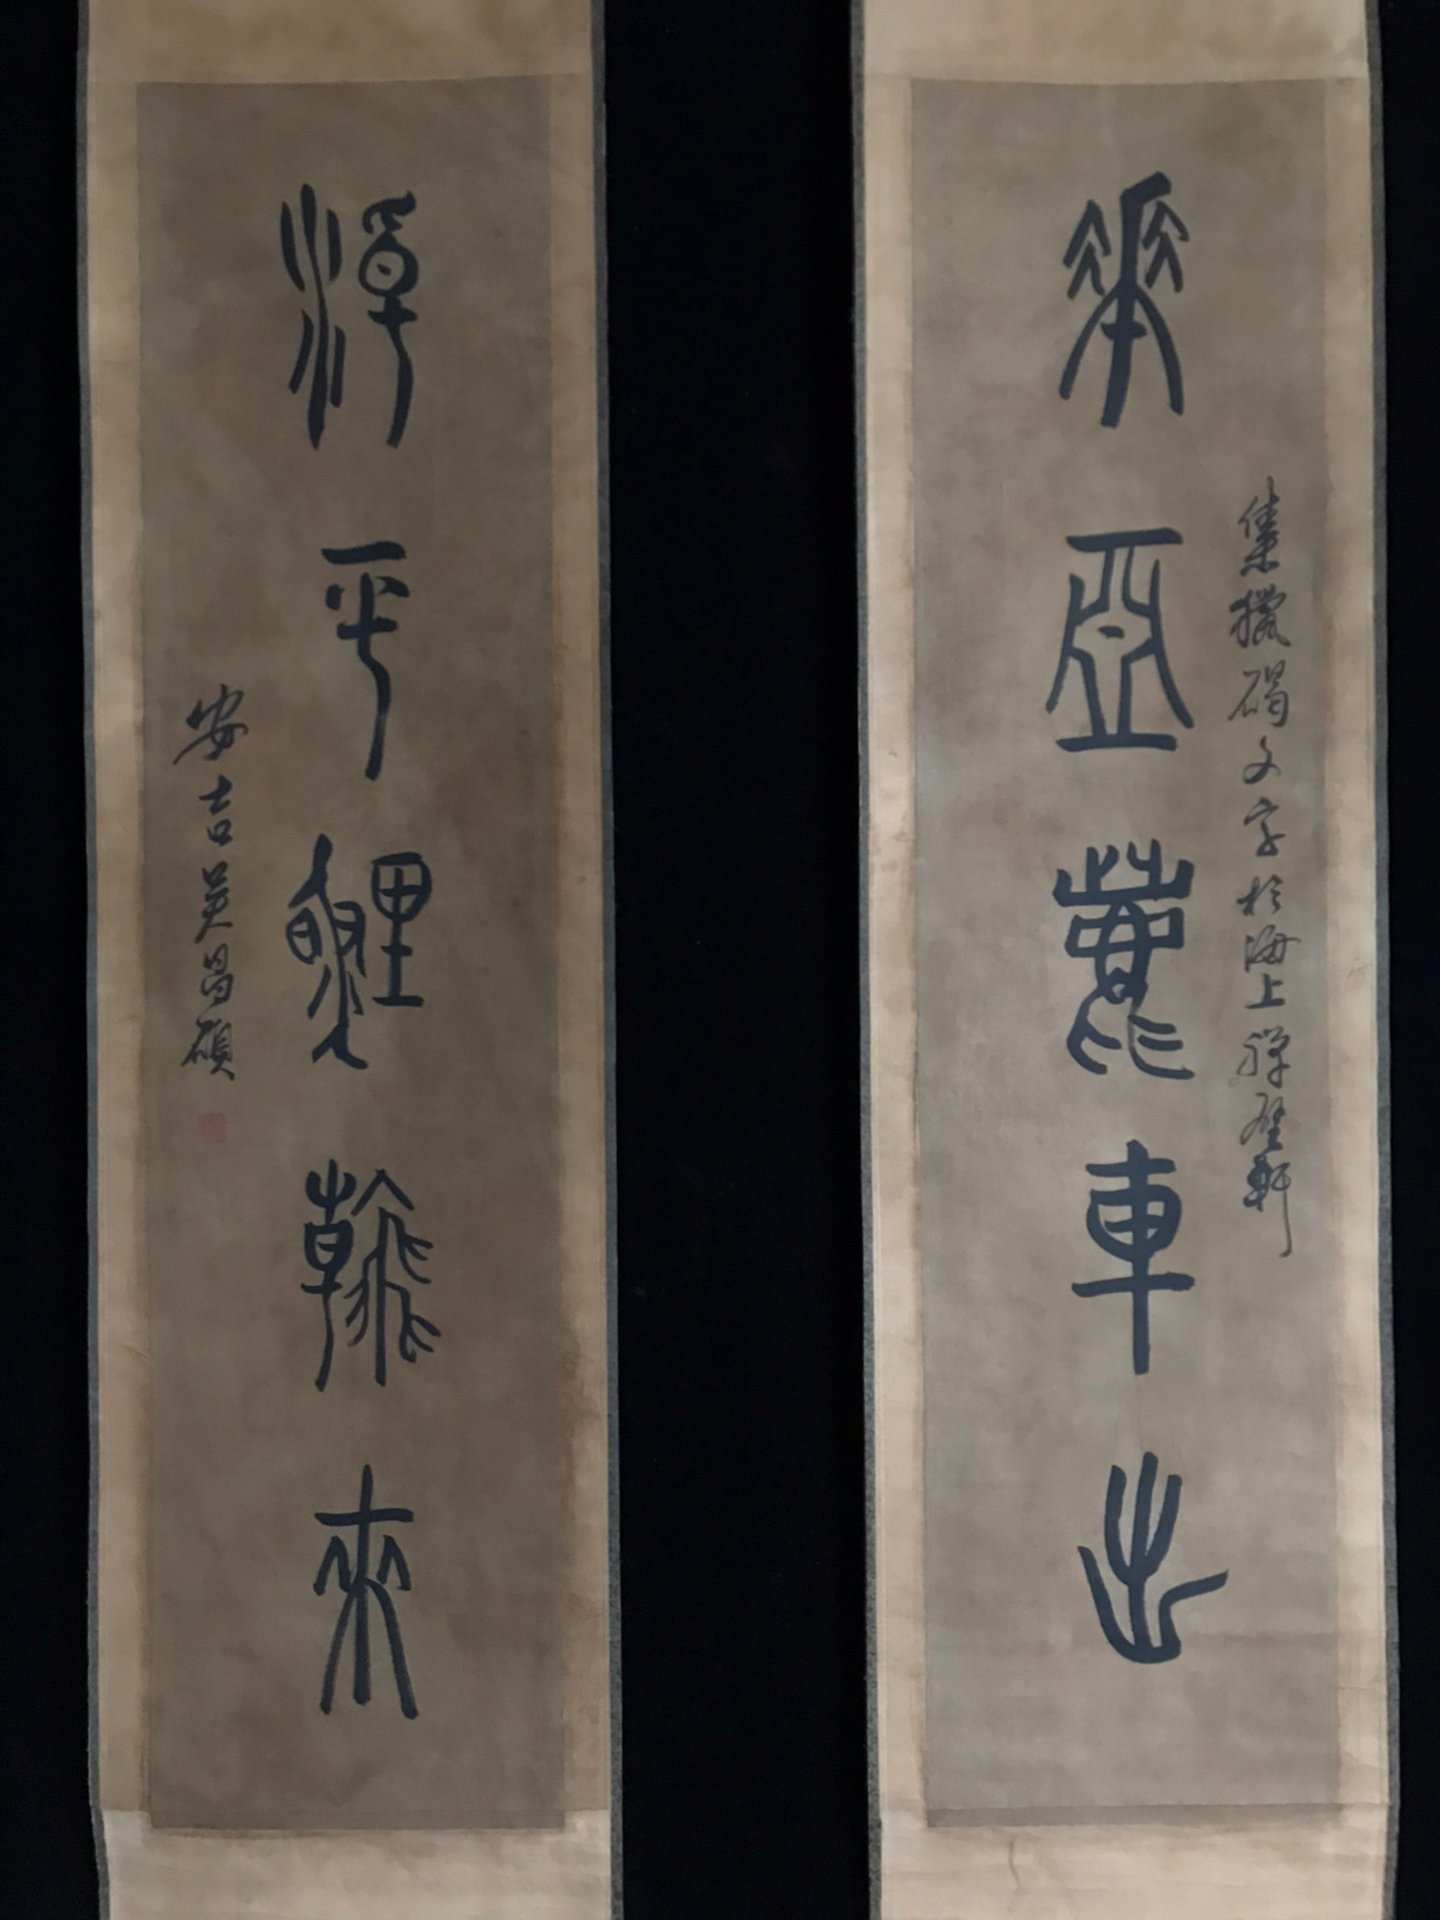 華亞鹿車出
集獵碣文字於海上禪甓軒
淖平鯉翰來
安吉吳昌碩